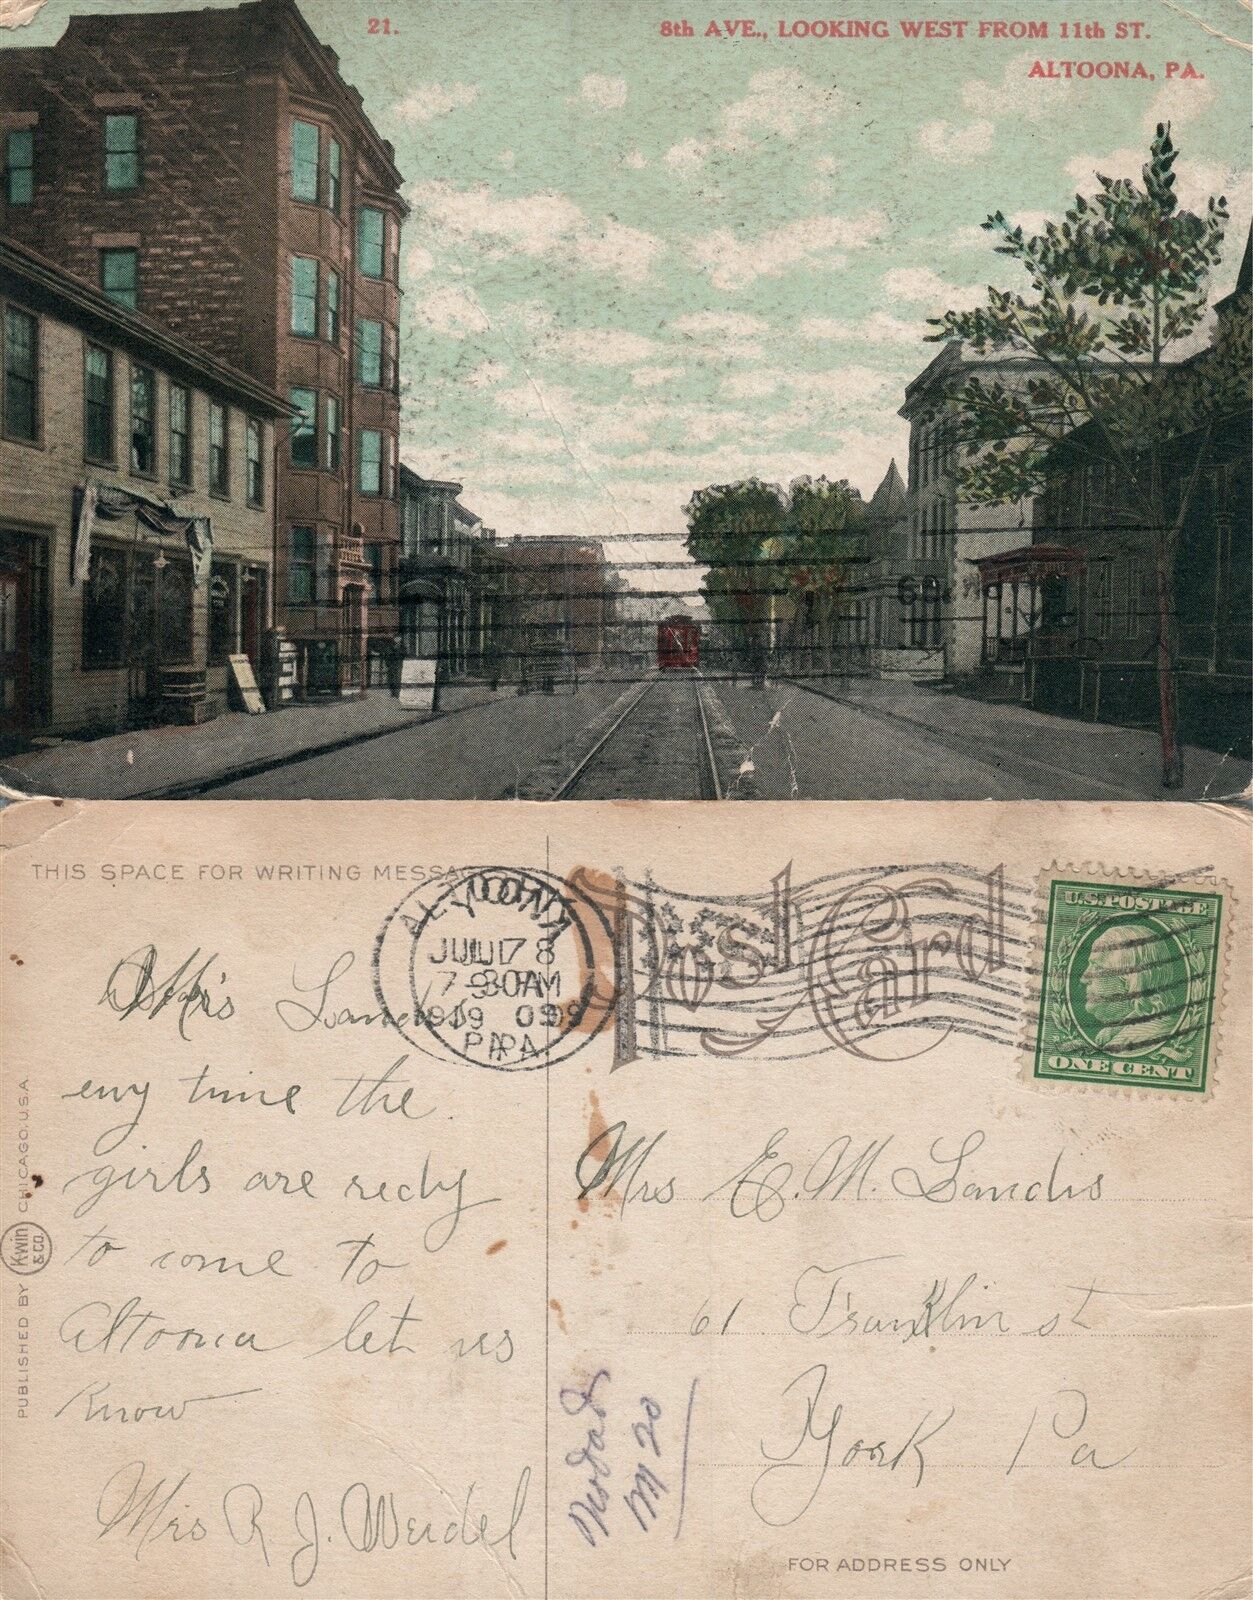 21.
8th AVE., LOOKING WEST FROM 11th ST.
ALTOONA, PA.
THIS SPACE FOR WRITING MESSAGE
Post Card
ALTOONA
1909
PA.
U.S. POSTAGE
ONE CENT
Mrs Landis
eny time the
girls are redy
to come to
Altoona let us
know
Mrs R. J. Weidel
Mrs E. M. Landis
61 Franklin st
York Pa
PUBLISHED BY Kwin & CO. CHICAGO, U.S.A.
M 20
FOR ADDRESS ONLY